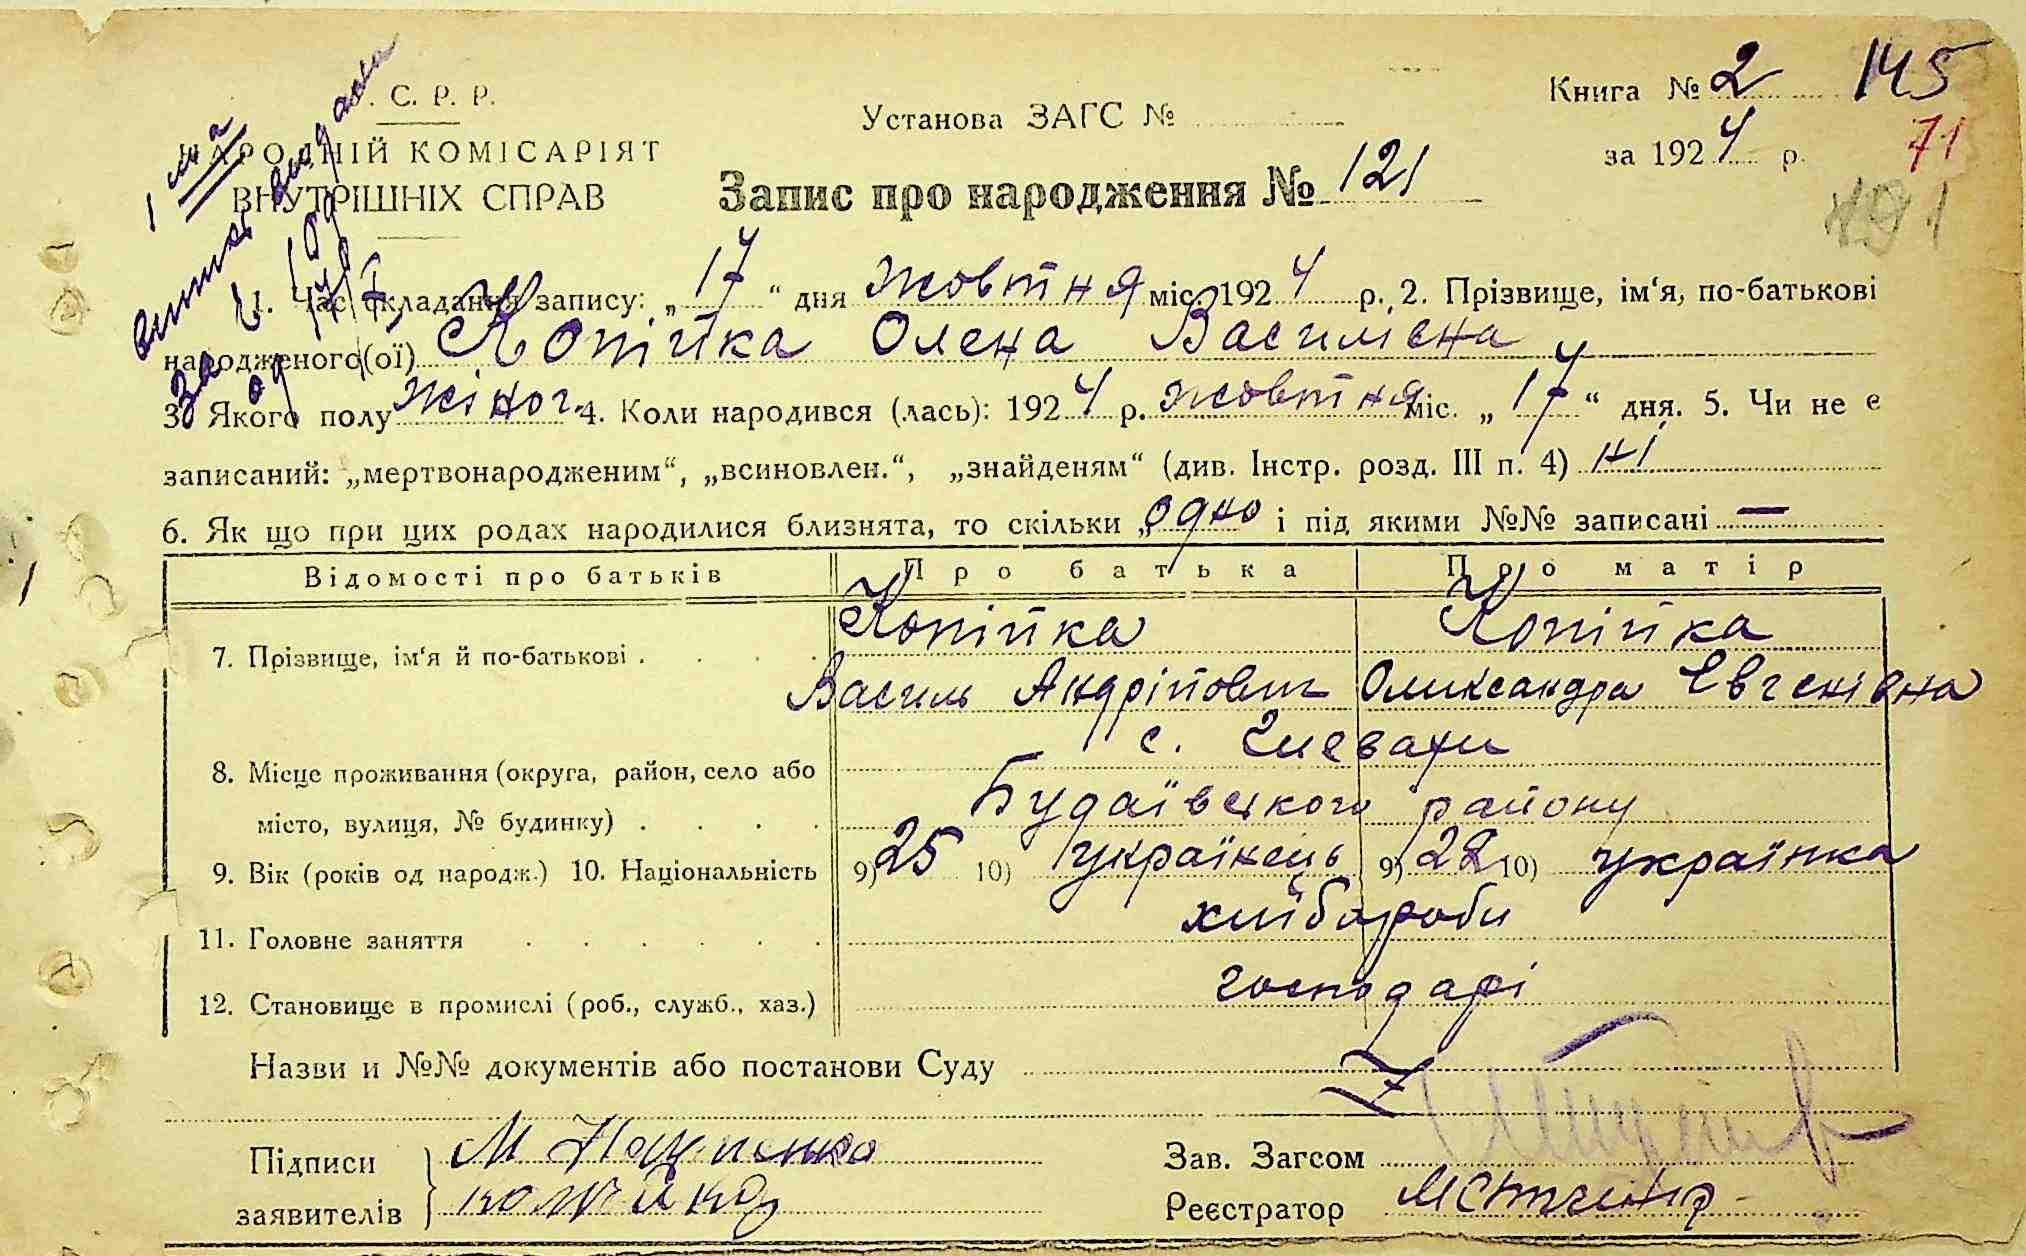 . С. Р. Р.
Установа ЗАГС №
Книга № 2 145
за 1924 р. 71
НАРОДНІЙ КОМІСАРІЯТ
ВНУТРІШНІХ СПРАВ
Запис про народження № 121
1. Час складання запису: „17“ дня жовтня міс. 1924 р. 2. Прізвище, ім‘я, по-батькові
народженого(ої) Копійка Олена Василівна
3. Якого полу жіног. 4. Коли народився (лась): 1924 р. жовтня міс. „17“ дня. 5. Чи не є
записаний: „мертвонародженим“, „всиновлен.“, „знайденям“ (див. Інстр. розд. III п. 4) ні
6. Як що при цих родах народилися близнята, то скільки „одно і під якими №№ записані —
Відомості про батьків Про батька Про матір
7. Прізвище, ім‘я й по-батькові . Копійка Копійка
Василь Андрійович Олександра Євгенівна
8. Місце проживання (округа, район, село або
місто, вулиця, № будинку) с. Глевахи
Будаївського району
9. Вік (років од народж.) 10. Національність 9) 25 10) українець 9) 22 10) українка
11. Головне заняття хлібороби
12. Становище в промислі (роб., служб., хаз.) господарі
Назви и №№ документів або постанови Суду
Підписи
заявителів
Зав. Загсом
Реєстратор